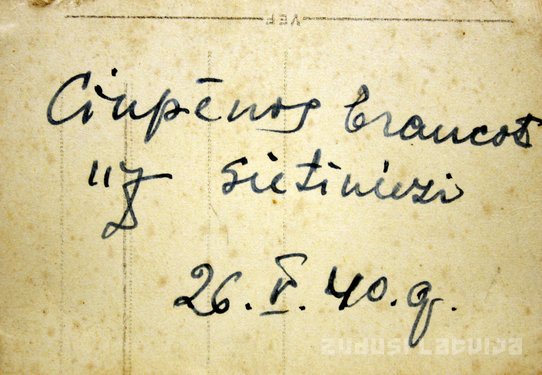 VEF
Ciupēnos braucot
uz Sietiniezi
26. V. 40. g.
zudusi latvija